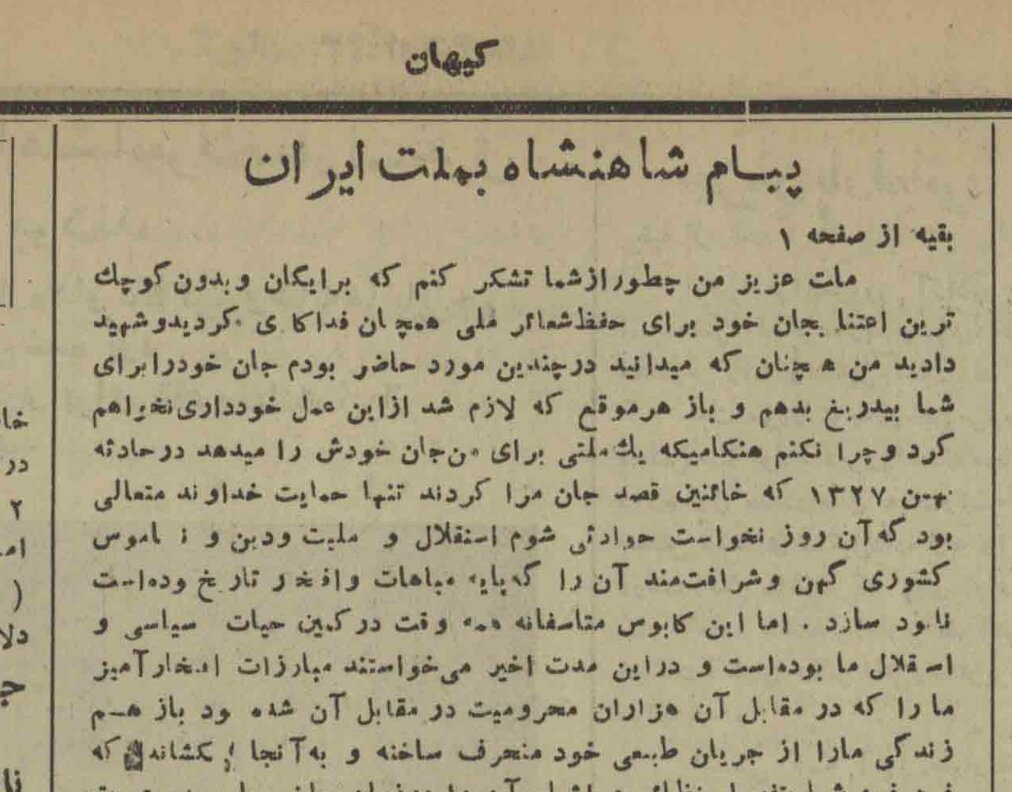 کیهان
پیام شاهنشاه بملت ایران
بقیه از صفحه ۱
ملت عزیز من چطور از شما تشکر کنم که برایگان و بدون کوچك
ترین اعتنا بجان خود برای حفظ شعائر ملی همچنان فداکاری کردید و شهید
دادید من همچنان که میدانید در چندین مورد حاضر بودم جان خود را برای
شما بیدریغ بدهم و باز هر موقع که لازم شد از این عمل خودداری نخواهم
کرد و چرا نکنم هنگامیکه یك ملتی برای من جان خودش را میدهد در حادثه
بهمن ۱۳۲۷ که خائنین قصد جان مرا کردند تنها حمایت خداوند متعالی
بود که آن روز نخواست حوادثی شوم استقلال و ملیت و دین و ناموس
کشوری کهن و شرافتمند آن را که پایه مباهات و افتخار تاریخ بوده است
نابود سازد . اما این کابوس متاسفانه همه وقت در کمین حیات سیاسی و
استقلال ما بوده است و در این مدت اخیر می‌خواستند مبارزات افتخار آمیز
ما را که در مقابل آن هزاران محرومیت در مقابل آن شده بود باز هم
زندگی ما را از جریان طبیعی خود منحرف ساخته و به آنجا بکشانند که